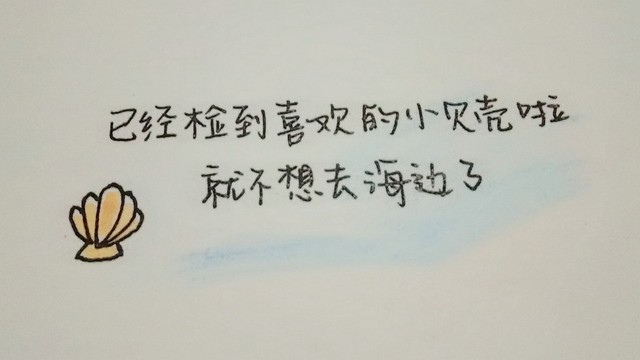 已经检到喜欢的小贝壳啦
就不想去海边了